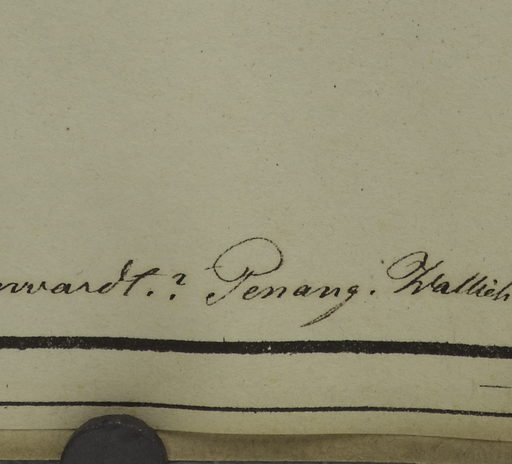 nwardt.? Penang. Wallich